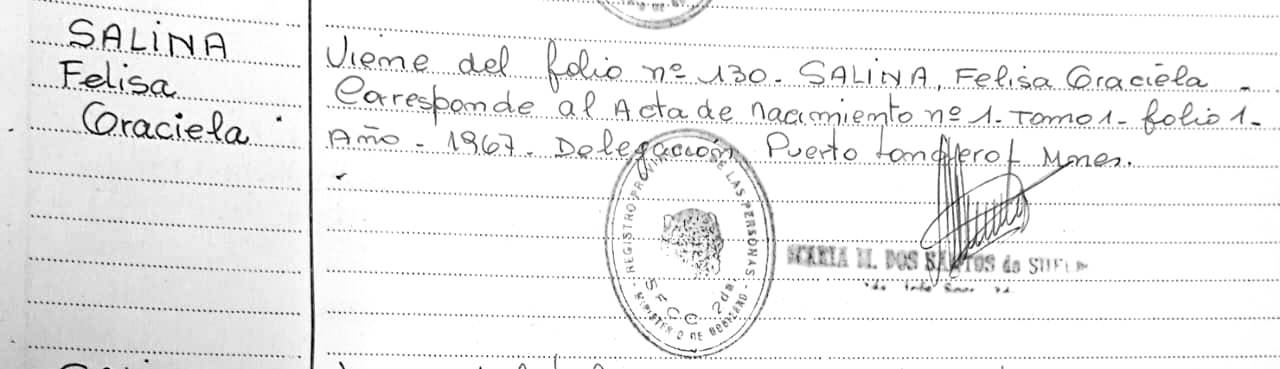 SALINA
Felisa
Graciela
Viene del folio nº 130. SALINA, Felisa Graciela -
Corresponde al Acta de nacimiento nº 1. Tomo 1- folio 1-
Año - 1967. Delegación Puerto
REGISTRO DE LAS PERSONAS
SFCC 2da
MINISTERIO DE GOBIERNO
MARIA DOS SANTOS de